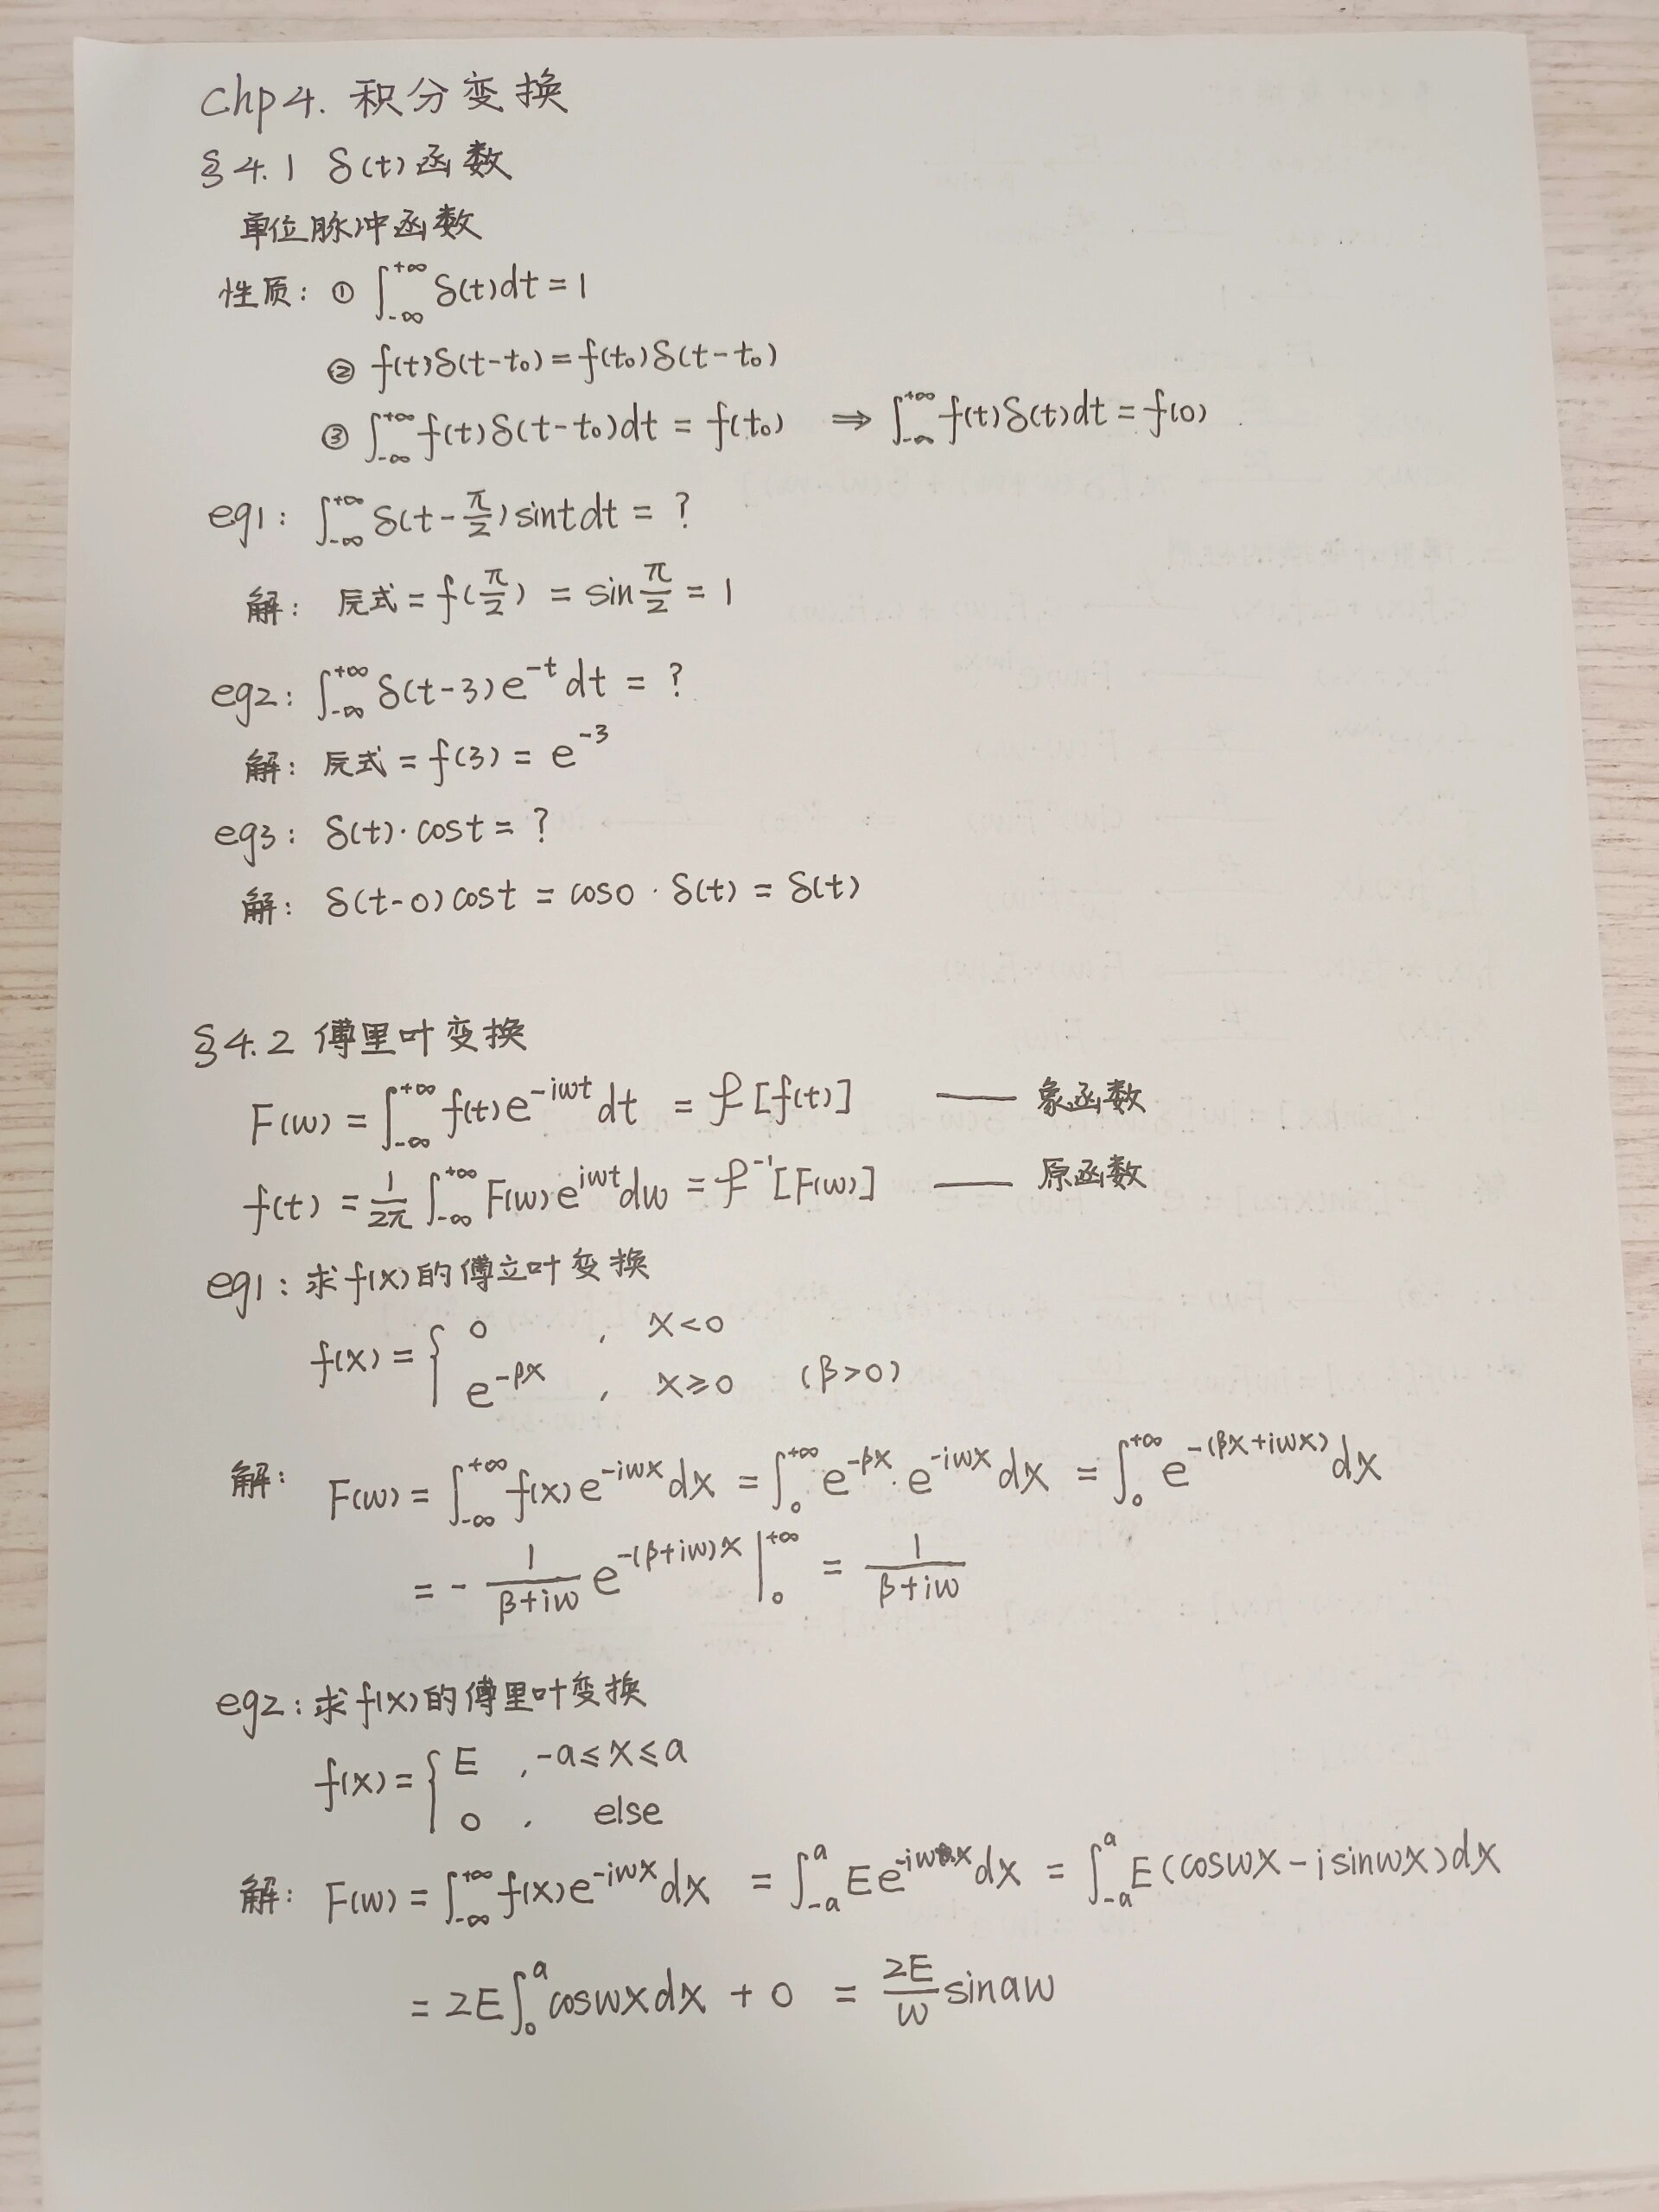 Chp4. 积分变换
§4.1 δ(t)函数
单位脉冲函数
性质: ① ∫_{-∞}^{+∞} δ(t)dt = 1
② f(t)δ(t-t₀) = f(t₀)δ(t-t₀)
③ ∫_{-∞}^{+∞} f(t)δ(t-t₀)dt = f(t₀) ⇒ ∫_{-∞}^{+∞} f(t)δ(t)dt = f(0)
eg1: ∫_{-∞}^{+∞} δ(t-π/2)sintdt = ?
解: 原式 = f(π/2) = sin π/2 = 1
eg2: ∫_{-∞}^{+∞} δ(t-3)e^{-t}dt = ?
解: 原式 = f(3) = e^{-3}
eg3: δ(t)·cost = ?
解: δ(t-0)cost = cos0·δ(t) = δ(t)
§4.2 傅里叶变换
F(w) = ∫_{-∞}^{+∞} f(t)e^{-iwt}dt = ℱ[f(t)] —— 象函数
f(t) = 1/2π ∫_{-∞}^{+∞} F(w)e^{iwt}dw = ℱ^{-1}[F(w)] —— 原函数
eg1: 求f(x)的傅立叶变换
f(x) = { 0 , x<0
e^{-βx} , x≥0 (β>0)
解: F(w) = ∫_{-∞}^{+∞} f(x)e^{-iwx}dx = ∫_0^{+∞} e^{-βx}·e^{-iwx}dx = ∫_0^{+∞} e^{-(βx+iwx)}dx
= - 1/(β+iw) e^{-(β+iw)x} |_0^{+∞} = 1/(β+iw)
eg2: 求f(x)的傅里叶变换
f(x) = { E , -a≤x≤a
0 , else
解: F(w) = ∫_{-∞}^{+∞} f(x)e^{-iwx}dx = ∫_{-a}^{a} Ee^{-iwx}dx = ∫_{-a}^{a} E(coswx-isinwx)dx
= 2E∫_0^a coswxdx + 0 = 2E/w sinaw